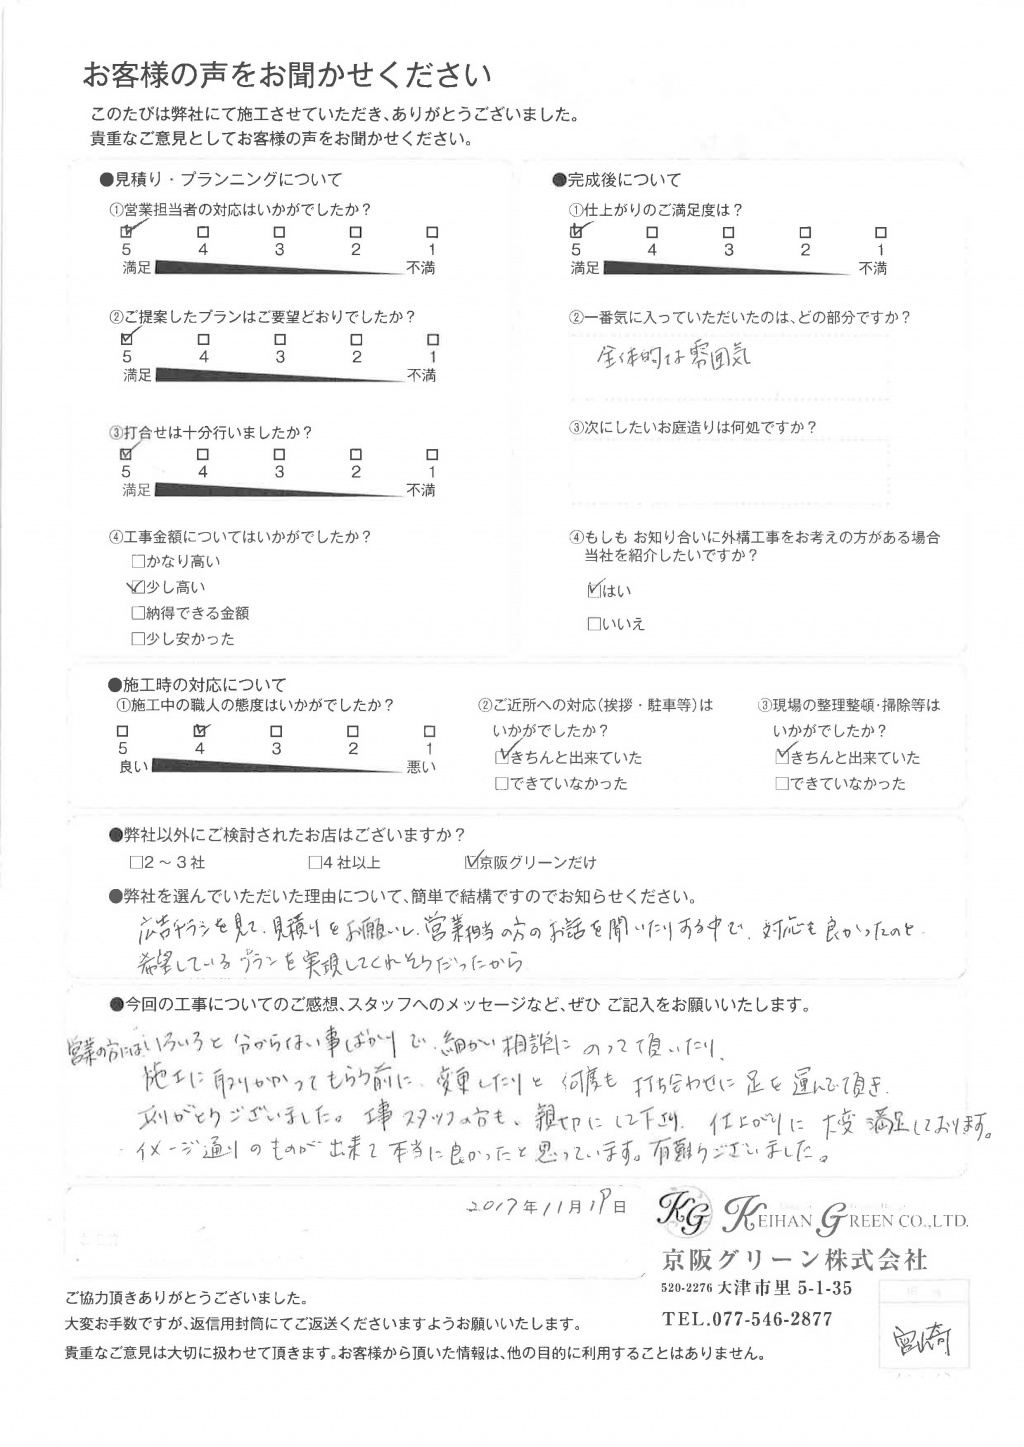 お客様の声をお聞かせください
このたびは弊社にて施工させていただき、ありがとうございました。
貴重なご意見としてお客様の声をお聞かせください。
●見積り・プランニングについて
①営業担当者の対応はいかがでしたか？
☑ □ □ □ □
5 4 3 2 1
満足 不満
②ご提案したプランはご要望どおりでしたか？
☑ □ □ □ □
5 4 3 2 1
満足 不満
③打合せは十分行いましたか？
☑ □ □ □ □
5 4 3 2 1
満足 不満
④工事金額についてはいかがでしたか？
□かなり高い
☑少し高い
□納得できる金額
□少し安かった
●完成後について
①仕上がりのご満足度は？
☑ □ □ □ □
5 4 3 2 1
満足 不満
②一番気に入っていただいたのは、どの部分ですか？
全体的な雰囲気
③次にしたいお庭造りは何処ですか？
④もしも お知り合いに外構工事をお考えの方がある場合
当社を紹介したいですか？
☑はい
□いいえ
●施工時の対応について
①施工中の職人の態度はいかがでしたか？
□ ☑ □ □ □
5 4 3 2 1
良い 悪い
②ご近所への対応（挨拶・駐車等）は
いかがでしたか？
☑きちんと出来ていた
□できていなかった
③現場の整理整頓・掃除等は
いかがでしたか？
☑きちんと出来ていた
□できていなかった
●弊社以外にご検討されたお店はございますか？
□２～３社 □４社以上 ☑京阪グリーンだけ
●弊社を選んでいただいた理由について、簡単で結構ですのでお知らせください。
広告チラシを見て、見積りをお願いし、営業担当の方のお話を聞いたりする中で、対応も良かったのと
希望しているプランを実現してくれそうだったから
●今回の工事についてのご感想、スタッフへのメッセージなど、ぜひ ご記入をお願いいたします。
営業の方にはいろいろと分からない事ばかりで、細かい相談にのって頂いたり、
施工に取りかかってもらう前に、変更したりと何度も打ち合わせに足を運んで頂き、
ありがとうございました。工事スタッフの方も、親切にして下り、仕上がりに大変満足しております。
イメージ通りのものが出来て本当に良かったと思っています。有難うございました。
2017年11月19日
KG KEIHAN GREEN CO.,LTD.
京阪グリーン株式会社
520-2276 大津市里 5-1-35
TEL.077-546-2877
ご協力頂きありがとうございました。
大変お手数ですが、返信用封筒にてご返送くださいますようお願いいたします。
貴重なご意見は大切に扱わせて頂きます。お客様から頂いた情報は、他の目的に利用することはありません。
宮崎